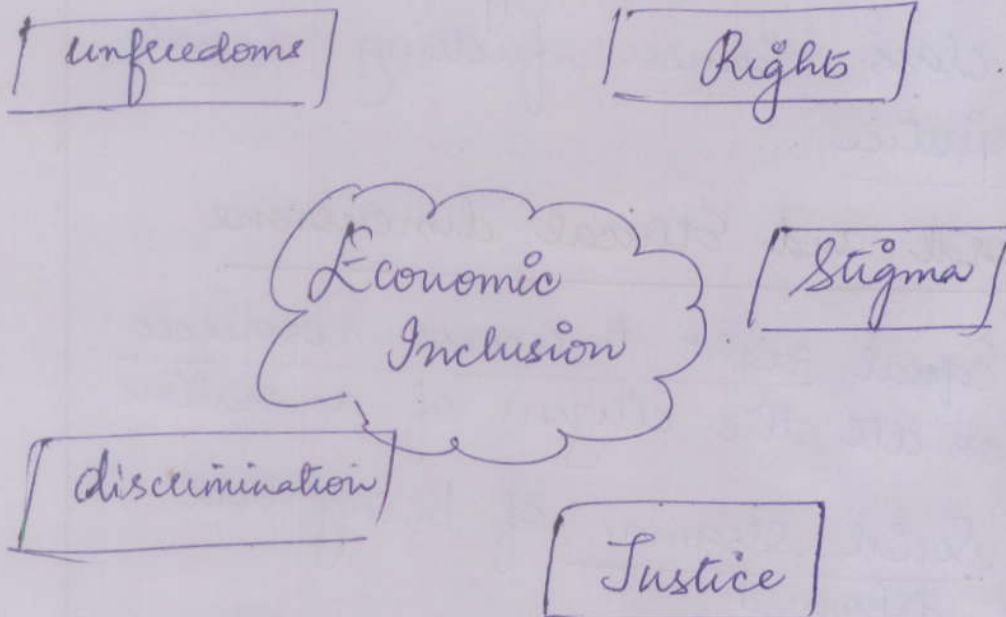 unfreedoms
Rights
Economic
Inclusion
Stigma
discrimination
Justice